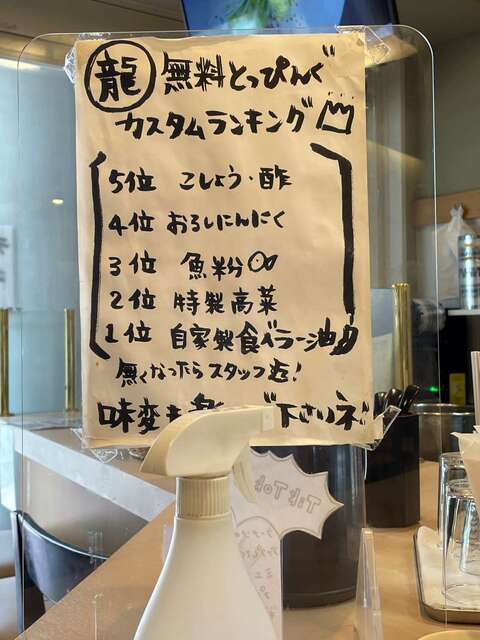 龍 無料とっぴんぐ
カスタムランキング
5位 こしょう・酢
4位 おろしにんにく
3位 魚粉
2位 特製高菜
1位 自家製食べラー油
無くなったらスタッフ迄!
味変も 下さいネ
TikTok